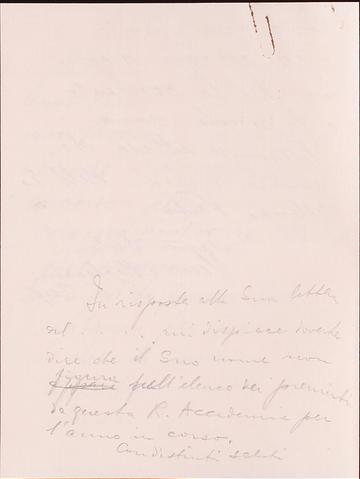 In risposta alla Sua lettera
del ....... mi dispiace doverle
dire che il Suo nome non
figura
nell'elenco dei premiati
da questa R. Accademia per
l'anno in corso.
Con distinti saluti